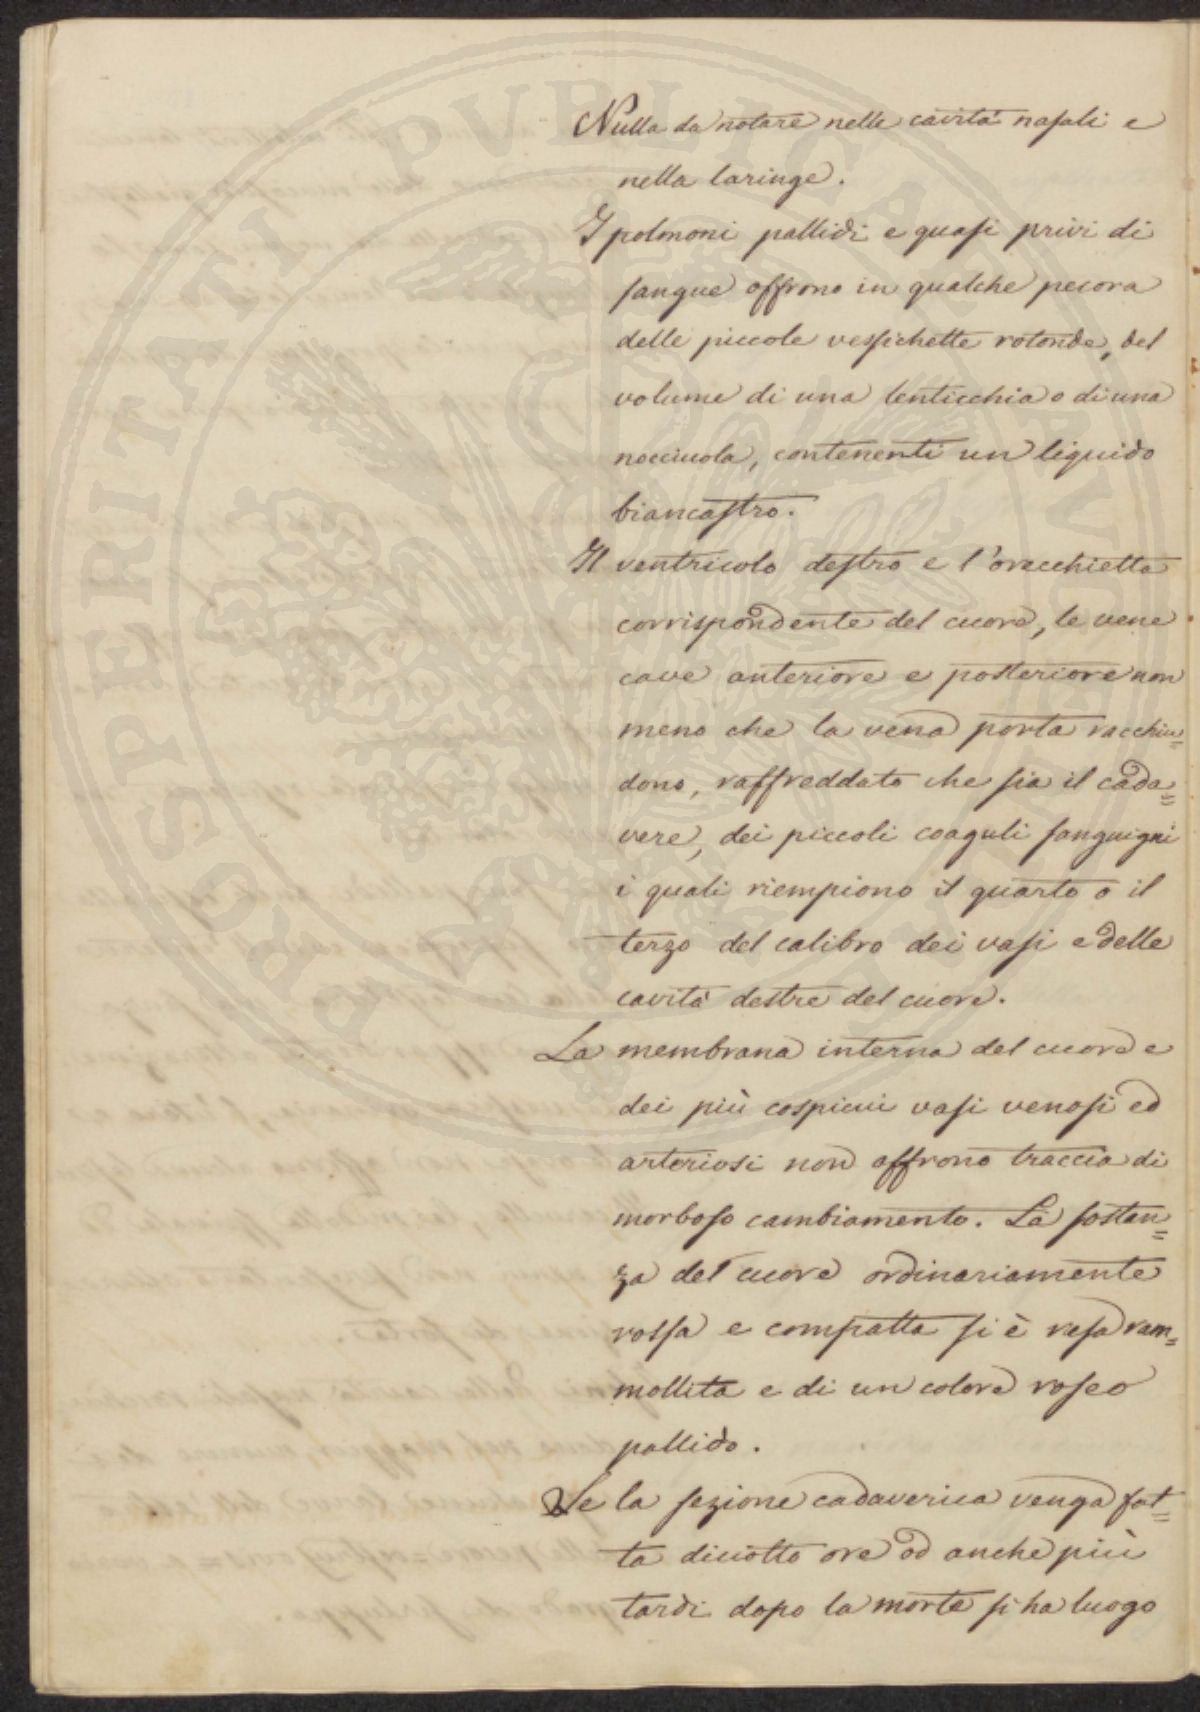 Nulla da notare nelle cavità nasali e
nella laringe.
I polmoni pallidi e quasi privi di
sangue offrono in qualche pecora
delle piccole vessichette rotonde, del
volume di una lenticchia o di una
nocciuola, contenenti un liquido
biancastro.
Il ventricolo destro e l'orecchietta
corrispondente del cuore, le vene
cave anteriore e posteriore non
meno che la vena porta racchiu=
dono, raffreddato che sia il cada=
vere, dei piccoli coaguli sanguigni
i quali riempiono il quarto o il
terzo del calibro dei vasi e delle
cavità destre del cuore.
La membrana interna del cuore e
dei più cospicui vasi venosi ed
arteriosi non offrono traccia di
morboso cambiamento. La sostan=
za del cuore ordinariamente
rossa e compatta si è resa ram=
mollita e di un colore roseo
pallido.
Se la sezione cadaverica venga fat=
ta diciotto ore od anche più
tardi dopo la morte si ha luogo
PROSPERITATI PVBLICAE